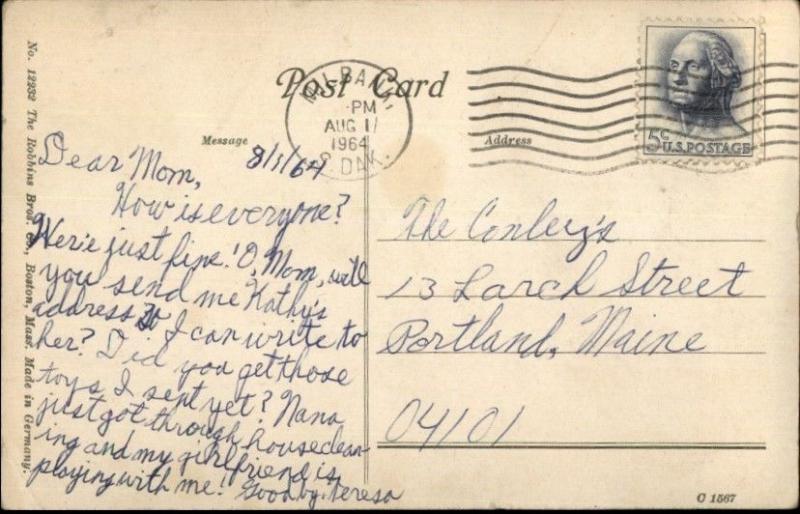 No. 12232 The Robbins Bros. Co., Boston, Mass. Made in Germany.
Post Card
MILBANK,
PM
AUG 1
1964
S. DAK.
5¢
U.S. POSTAGE
Message
Address
8/1/64
Dear Mom,
How is everyone?
We're just fine! O, Mom, will
you send me Kathy's
address so I can write to
her? Did you get those
toys I sent yet? Nana
just got through houseclean-
ing and my girlfriend is
playing with me! Goodby, Teresa
The Conley's
13 Larch Street
Portland, Maine
04101
C 1567